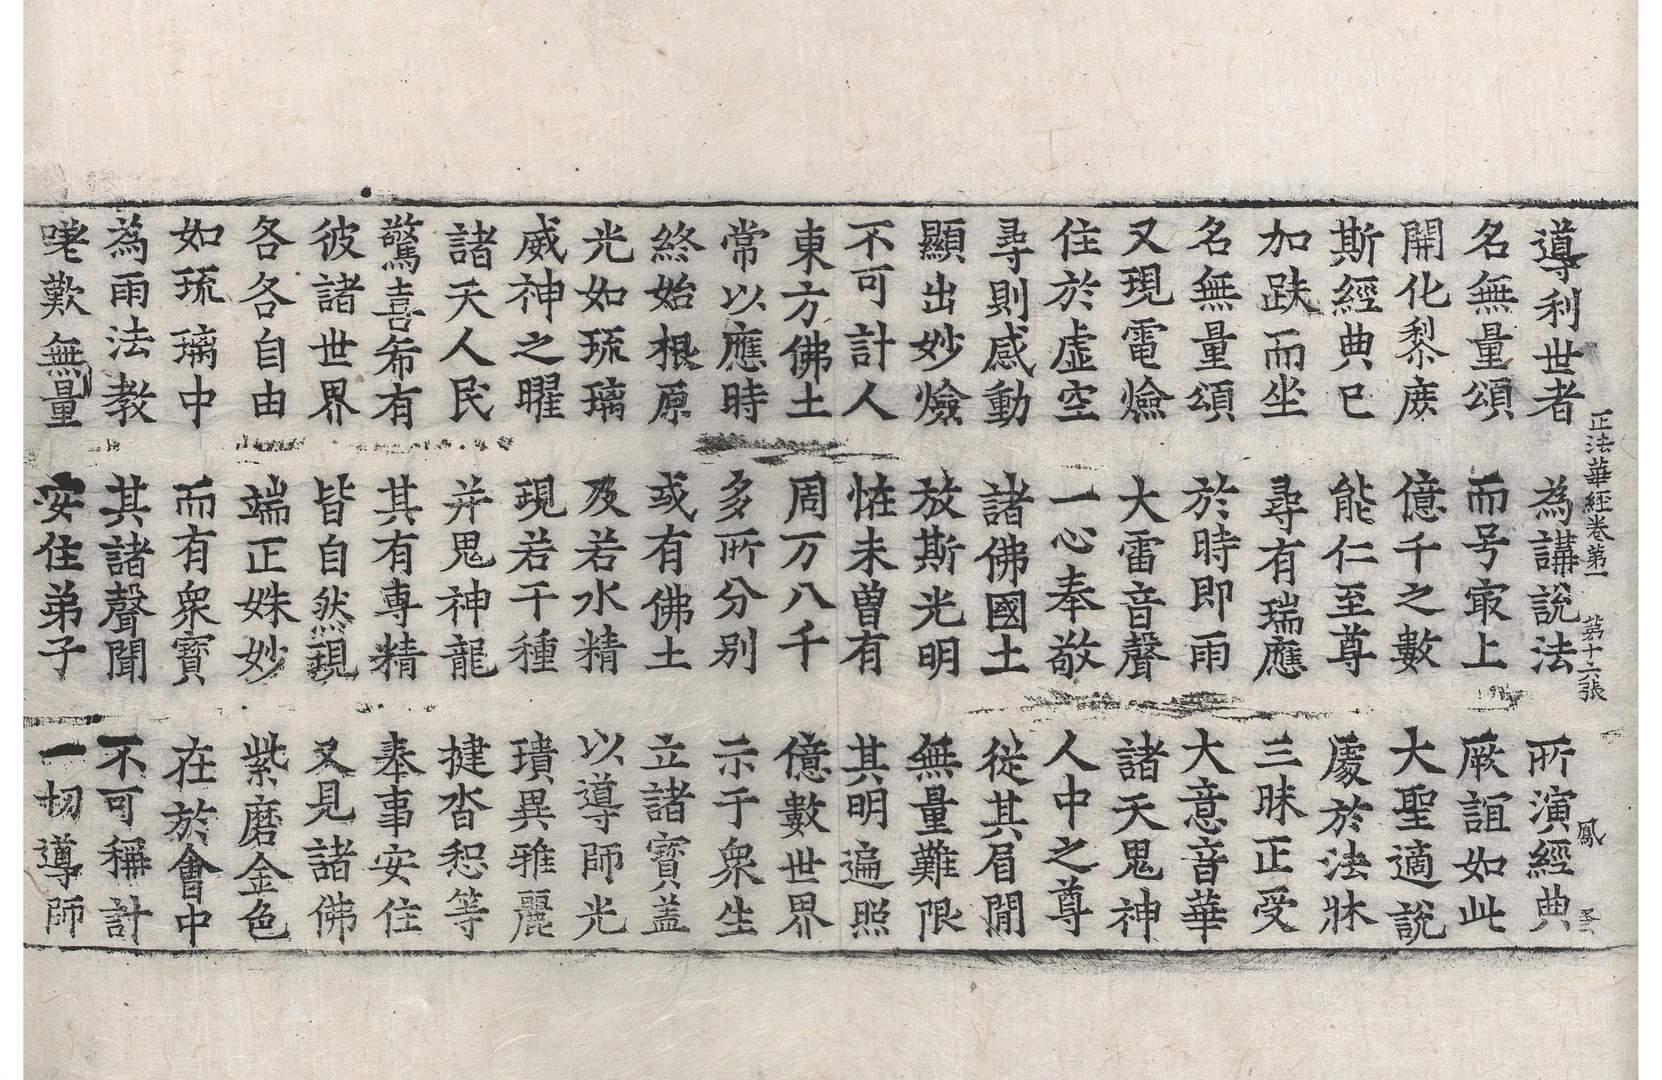 正法華經卷第一 第十六張 鳳
導利世者 為講說法 所演經典
名無量頌 而号冣上 厥誼如此
開化黎庶 億千之數 大聖適說
斯經典已 能仁至尊 處於法牀
加趺而坐 尋有瑞應 三昧正受
名無量頌 於時即雨 大意音華
又現電燄 大雷音聲 諸天鬼神
住於虛空 一心奉敬 人中之尊
尋則感動 諸佛國土 從其眉間
顯出妙燄 放斯光明 無量難限
不可計人 恠未曾有 其明遍照
東方佛土 周万八千 億數世界
常以應時 多所分別 示于衆生
終始根原 或有佛土 立諸寶盖
光如琉璃 及若水精 以導師光
威神之曜 現若干種 瓌異雅麗
諸天人民 并鬼神龍 揵沓恕等
驚喜希有 其有專精 奉事安住
彼諸世界 皆自然現 又見諸佛
各各自由 端正姝妙 紫磨金色
如琉璃中 而有衆寶 在於會中
為雨法教 其諸聲聞 不可稱計
嗟歎無量 安住弟子 一切導師